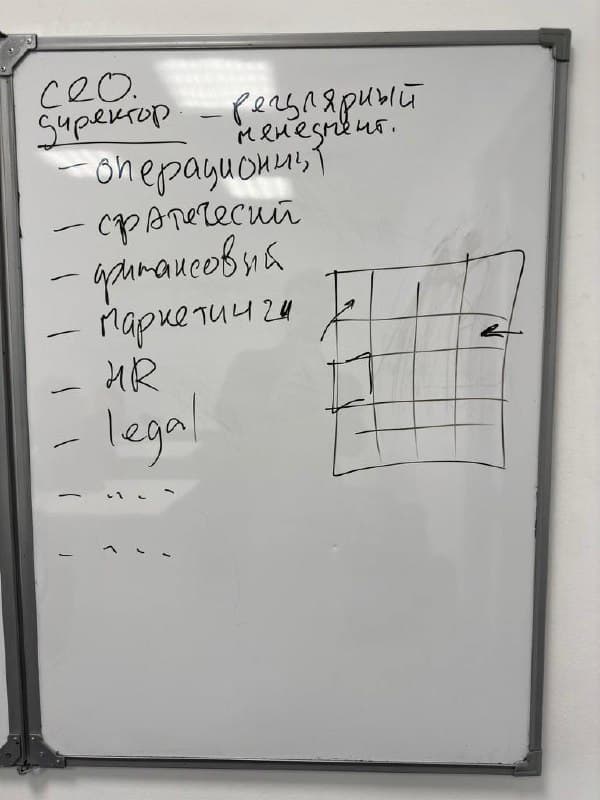 CEO.
директор – регулярный
менеджмент.
– операционный
– стратеческий
– финансовый
– маркетинги
– HR
– legal
– ....
– ....